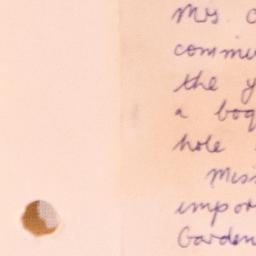 Mrs. C
commi
the y
a boq
hole
Miss
impor
Garden